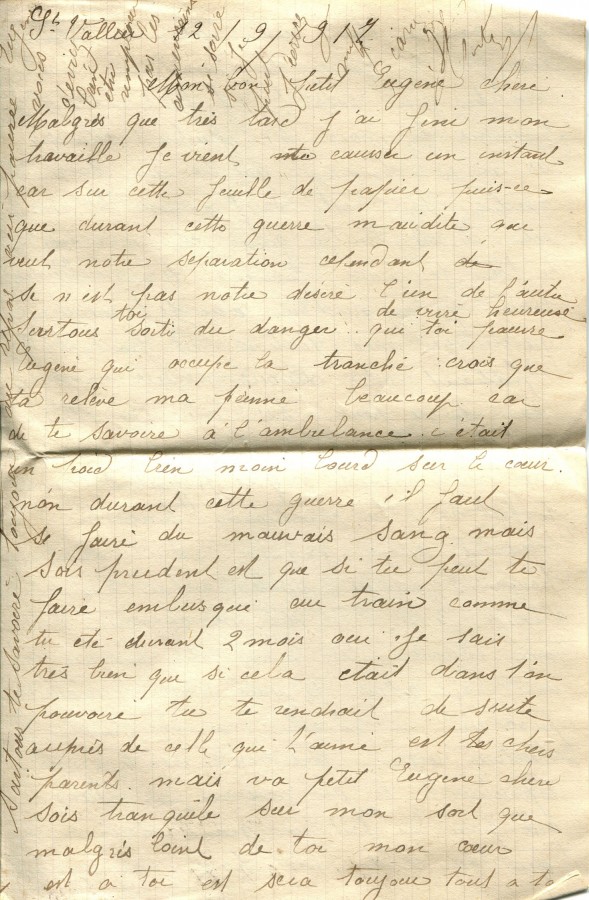 St Vallier 2/9/917
Mon bon Petit Eugène cheri
Malgrés que très tard j'ai fini mon
travaille Je vient causser un instant
car sur cette feuille de papier puis-ce
que durant cette guerre maudite que
veut notre separation cependant
se n'est pas notre désiré l'un de l'autre
de vivre heureuse
Surtous toi sorti du danger . qui toi pauvre
Eugène qui occupe la tranché crois que
ta relève ma peinné beaucoup car
de te savoire à l'ambulance c'était
un poid bien moin lourd sur le cœur .
nón durant cette guerre il faut
se faire du mauvais sang mais
sois prudent est que si tu peut te
faire embusqué au train comme
tu eté durant 2 mois oui . Je sais
très bien que si cela était dans t'on
pouvoire tu te rendrait de suite
auprès de celle qui t'aime est tes chers
parents . mais va petit Eugène chere
sois tranquile sur mon sort que
malgrès loint de toi mon cœur
est a toi est sera toujour tout a toi
Surtous te savoire toujour